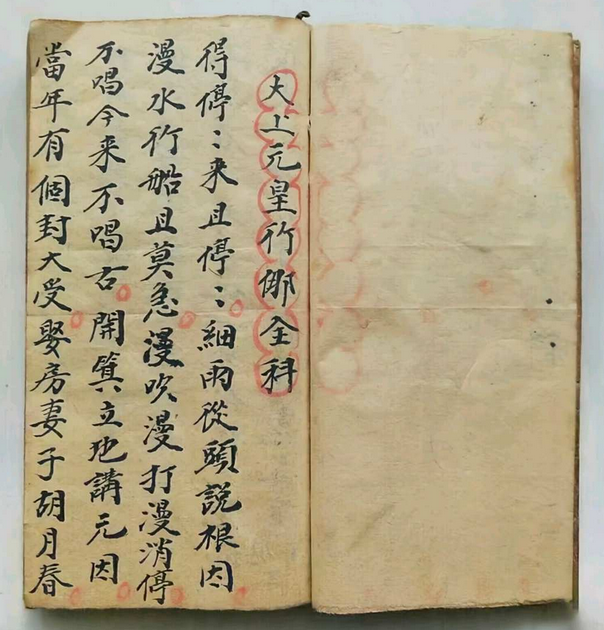 大上元皇行傩全科
得停〻来且停〻細雨從頭説根因
漫水行船且莫急漫吹漫打漫消停
不唱今来不唱古開箕立地講元因
當年有個封大受娶房妻子胡月春